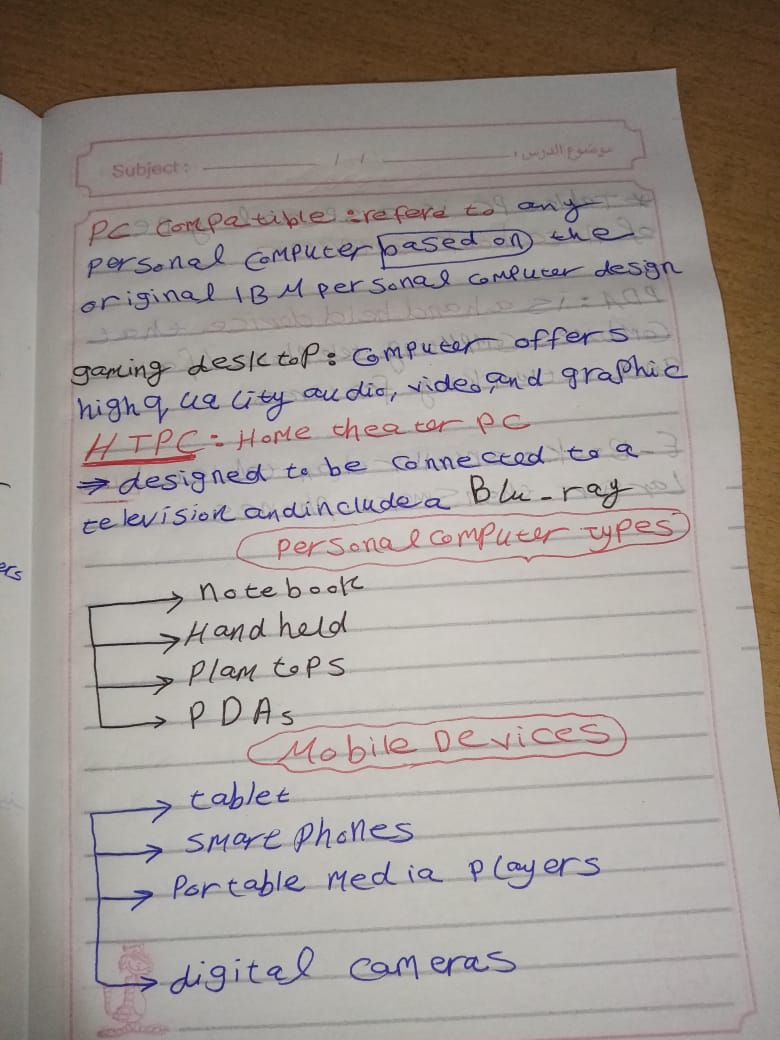 Subject: / / موضوع الدرس:
PC Compatible : refere to any
personal computer based on the
original IBM personal computer design
gaming desktop: computer offers
high quality audio, video, and graphic
HTPC: Home theater PC
⇒ designed to be connected to a
television and include a Blu-ray
personal computer types
→ notebook
→ Hand held
→ Plam tops
→ PDAs
Mobile Devices
→ tablet
→ smart phones
→ Portable media players
→ digital cameras
ers